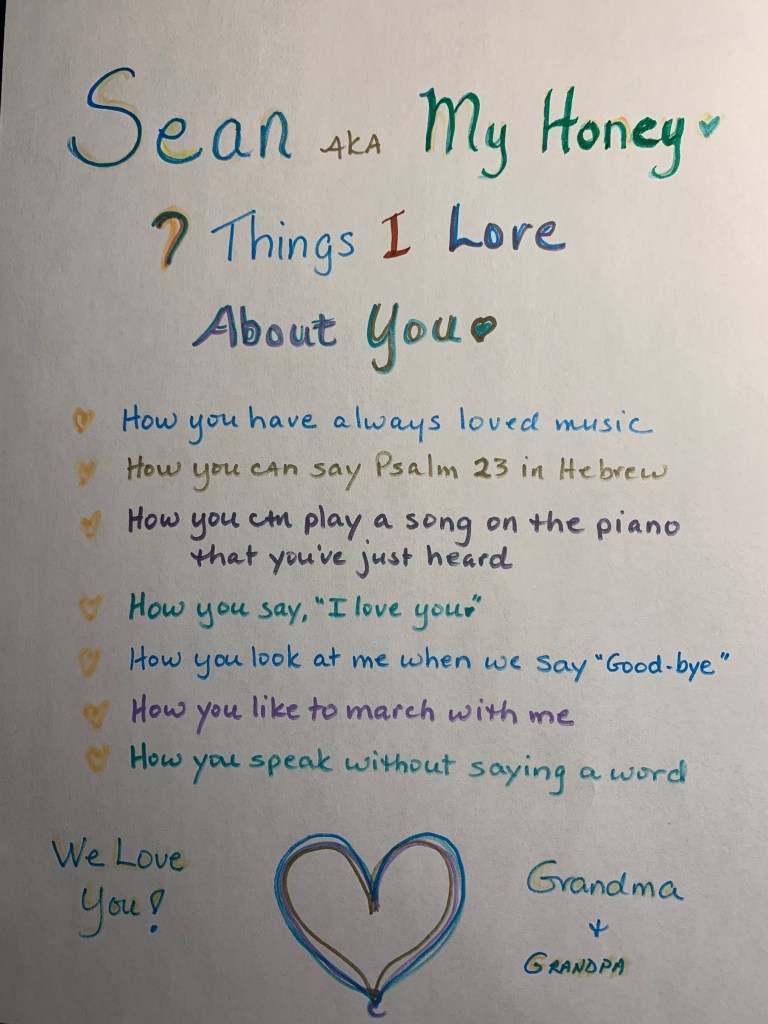 Sean AKA My Honey
7 Things I Love
About You
How you have always loved music
How you can say Psalm 23 in Hebrew
How you can play a song on the piano
that you've just heard
How you say, "I love you."
How you look at me when we say "Good-bye"
How you like to march with me
How you speak without saying a word
We Love
You!
Grandma
+
GRANDPA